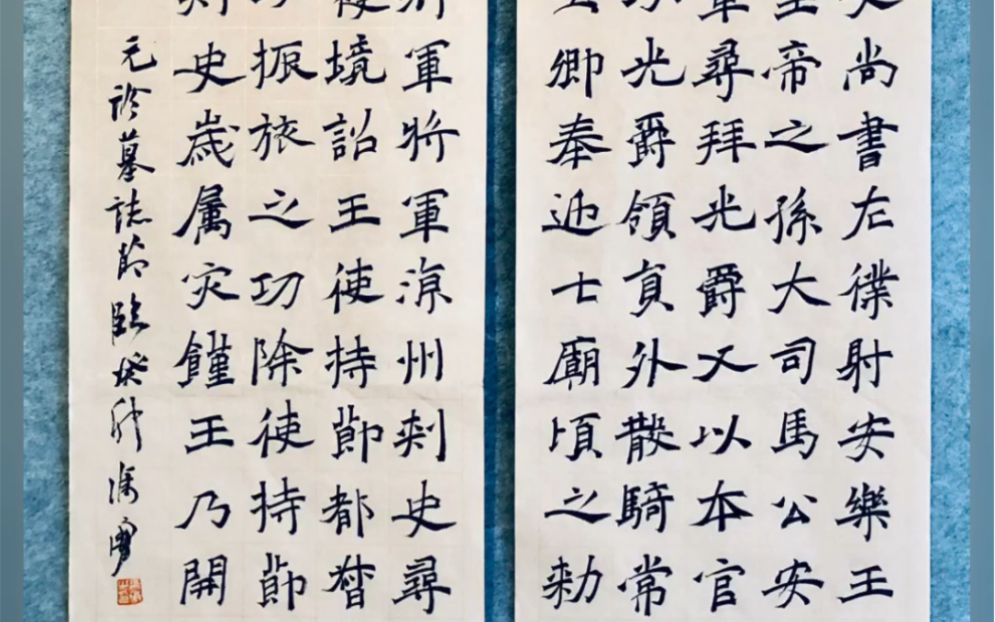 尚書左僕射安樂王
帝之孫大司馬公安
軍尋拜光爵又以本官
光爵領員外散騎常
公卿奉迎七廟頃之勑
軍將軍涼州刾史尋
境詔王使持節都督
振旅之功除使持節
史歲屬灾饉王乃開
元詮墓誌節臨癸卯